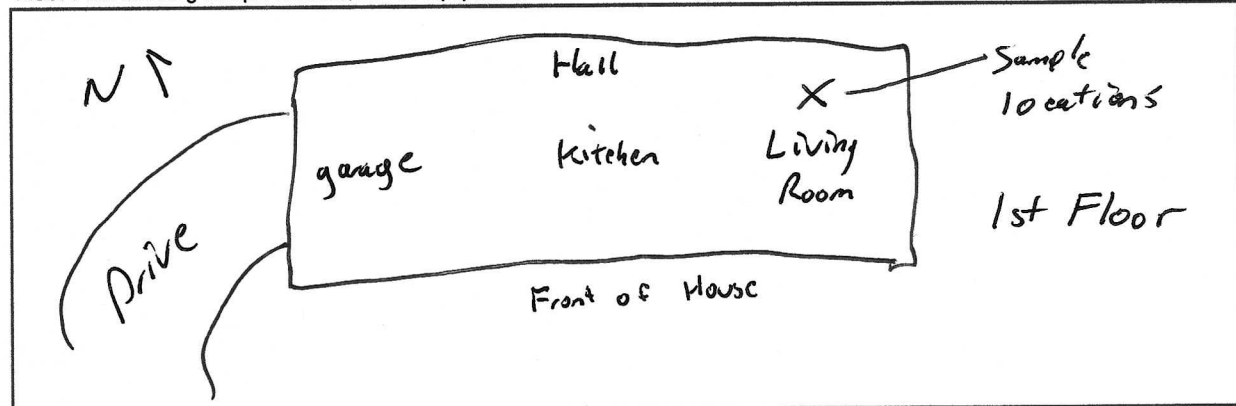 N
Hall
Sample
locations
garage
Kitchen
Living
Room
1st Floor
Drive
Front of House